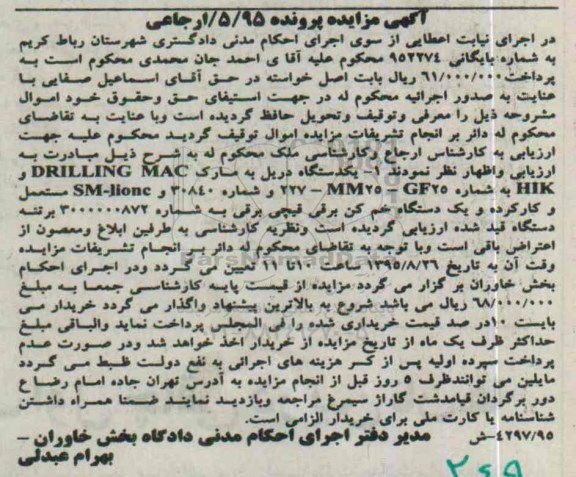 آگهی مزایده پرونده ۵/۹۵/ارجاعی
در اجرای نیابت اعطایی از سوی اجرای احکام مدنی دادگستری شهرستان رباط کریم
به شماره بایگانی ۹۵۲۲۷۴ محکوم علیه آقا ی احمد جان محمدی محکوم است به
پرداخت ۶۱/۰۰۰/۰۰۰ ریال بابت اصل خواسته در حق آقای اسماعیل صفایی با
عنایت به صدور اجرائیه محکوم له در جهت استیفای حق وحقوق خود اموال
مشروحه ذیل را معرفی وتوقیف وتحویل حافظ گردیده است وبا عنایت به تقاضای
محکوم له دائر بر انجام تشریفات مزایده اموال توقیف گردید محکوم علیه جهت
ارزیابی به کارشناس ارجاع وکارشناسی ملک محکوم له به شرح ذیل مبادرت به
ارزیابی واظهار نظر نمودند ۱- یکدستگاه دریل به مارک DRILLING MAC و
HIK به شماره MM۲۵ – GF۲۵ – ۲۲۷ و شماره ۳۰۸۴۰ و SM-lionc مستعمل
و کارکرده و یک دستگاه خم کن برقی قیچی برقی به شماره ۳۰۰۰۰۰۰۸۷۲ برتنه
دستگاه قید شده ارزیابی گردیده است ونظریه کارشناسی به طرفین ابلاغ ومصون از
اعتراض باقی است وبا توجه به تقاضای محکوم له دائر بر انجام تشریفات مزایده
وقت آن به تاریخ ۱۳۹۵/۸/۲۶ ساعت ۱۰تا ۱۱ تعیین می گردد ودر اجرای احکام
بخش خاوران بر گزار می گردد مزایده از قیمت پایه کارشناسی جمعا به مبلغ
۶۸/۰۰۰/۰۰۰ ریال می باشد شروع به بالاترین پیشنهاد واگذار می گردد خریدار می
بایست ۱۰در صد قیمت خریداری شده رافی المجلس پرداخت نماید والباقی مبلغ
حداکثر ظرف یک ماه از تاریخ مزایده از خریدار اخذ خواهد شد ودر صورت عدم
پرداخت سپرده اولیه پس از کسر هزینه های اجرائی به نفع دولت ظبط می گردد
مایلین می توانندظرف ۵ روز قبل از انجام مزایده به آدرس تهران جاده امام رضا ع
دور برگردان قیامدشت گاراژ سیمرغ مراجعه وبازدید نمایند ضمنا همراه داشتن
شناسنامه یا کارت ملی برای خریدار الزامی است.
۴۲۹۷/۹۵–ش مدیر دفتر اجرای احکام مدنی دادگاه بخش خاوران –
بهرام عبدلی